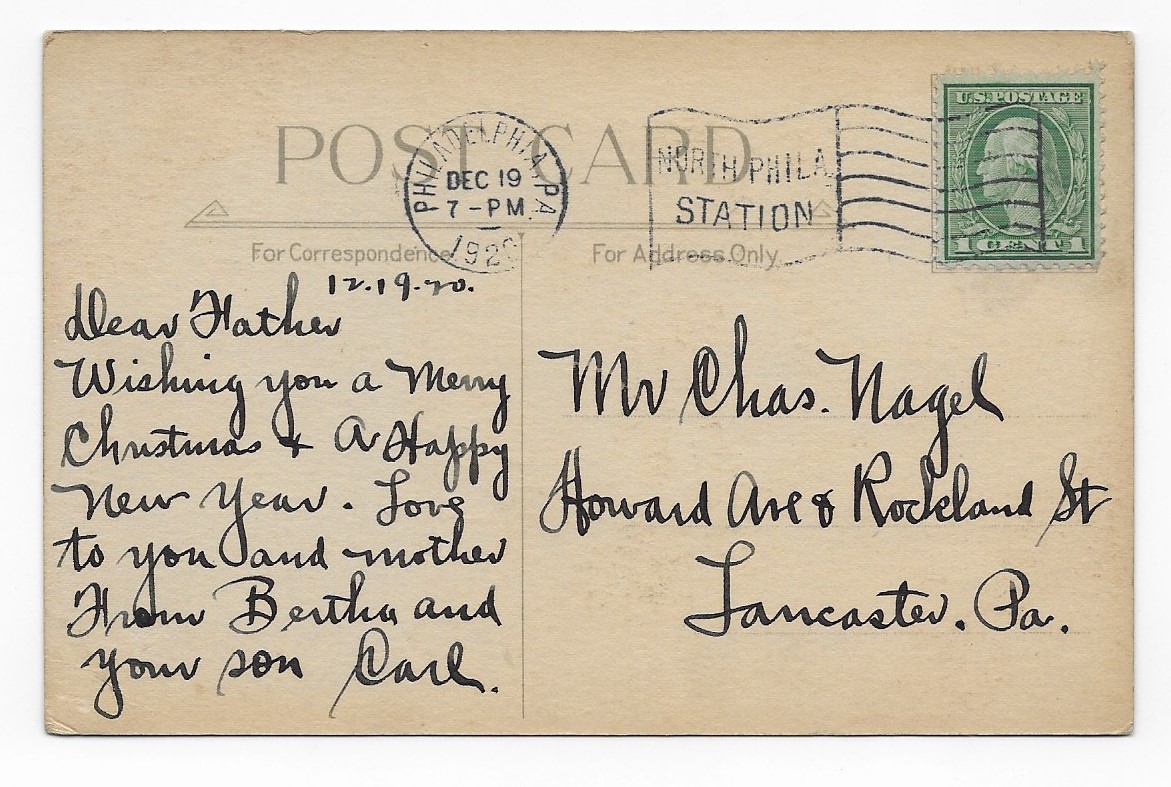 POST CARD
PHILADELPHIA PA
DEC 19
7-PM
1920
NORTH PHILA.
STATION
U.S. POSTAGE
1 CENT 1
For Correspondence
For Address Only
12.19.20.
Dear Father
Wishing you a Merry
Christmas & A Happy
New Year. Love
to you and mother
From Bertha and
your son Carl.
Mr Chas. Nagel
Howard Ave & Rockland St
Lancaster, Pa.